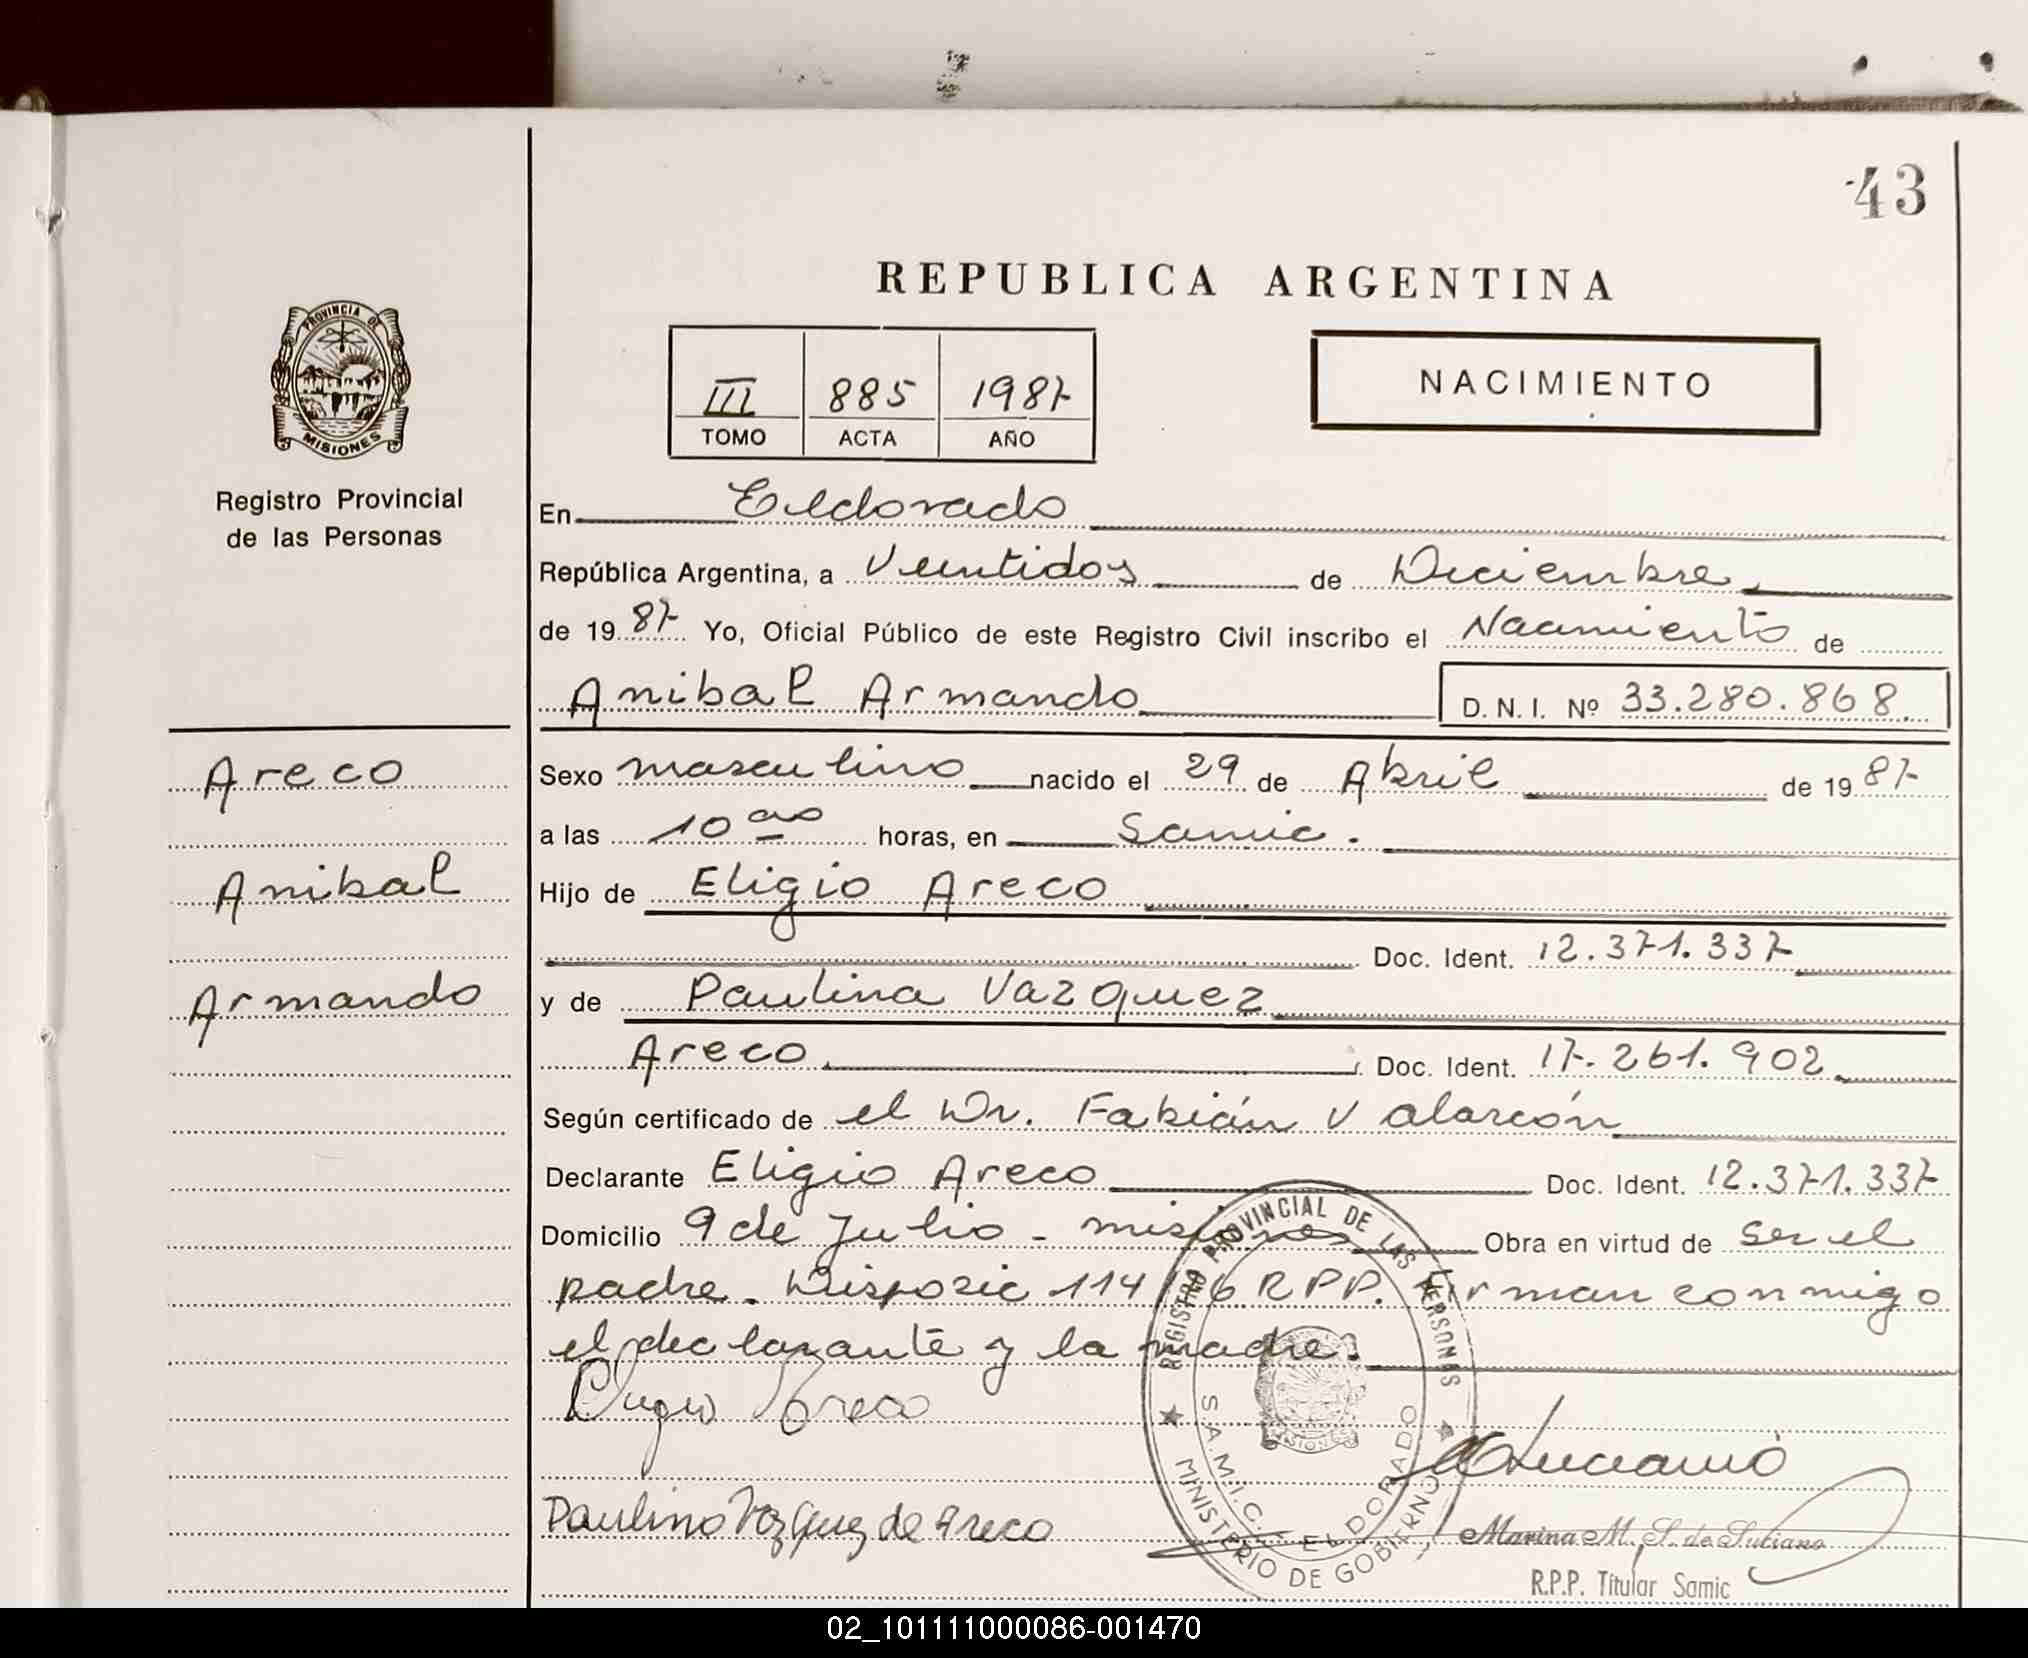 43
REPUBLICA ARGENTINA
PROVINCIA DE
MISIONES
Registro Provincial
de las Personas
III 885 1987
TOMO ACTA AÑO
NACIMIENTO
En Eldorado
República Argentina, a Veintidos de Diciembre
de 1987 Yo, Oficial Público de este Registro Civil inscribo el Nacimiento de
Anibal Armando D.N.I. Nº 33.280.868
Areco
Anibal
Armando
Sexo masculino nacido el 29 de Abril de 1987
a las 10 horas, en Samic.
Hijo de Eligio Areco
Doc. Ident. 12.371.337
y de Paulina Vazquez
Areco Doc. Ident. 17.261.902
Según certificado de el Dr. Fabián Valarcón
Declarante Eligio Areco Doc. Ident. 12.371.337
Domicilio 9 de Julio - misiones Obra en virtud de ser el
padre. Disposic 114/ R.P.P. Firman conmigo
el declarante y la madre.
Eligio Areco
Paulino Vazquez de Areco
REGISTRO PROVINCIAL DE LAS PERSONAS
S.A.M.I.C. - ELDORADO
MINISTERIO DE GOBIERNO
MISIONES
Marina M. S. de Luciano
R.P.P. Titular Samic
02_101111000086-001470